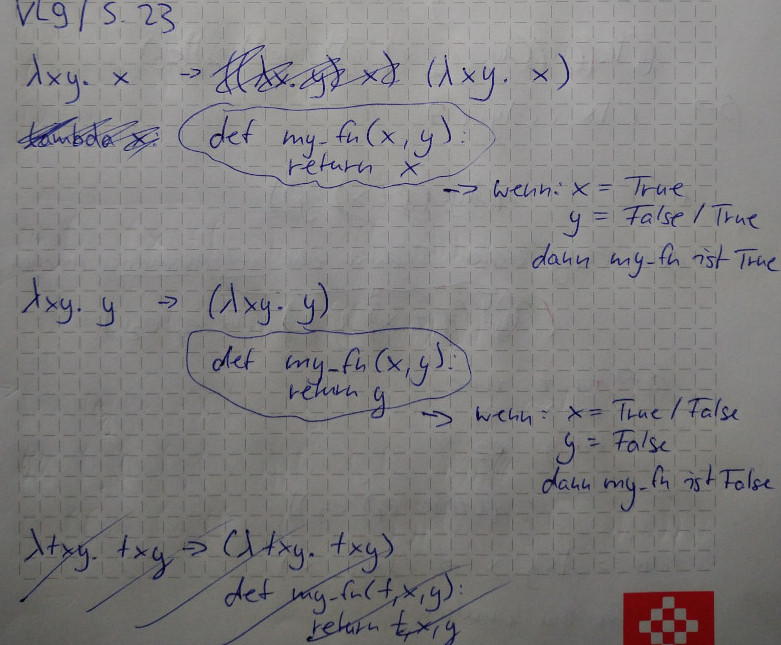 VL9 / S. 23
λxy. x → ((λx. y) x) (λxy. x)
lambda x: def my_fn(x, y):
return x
→ wenn: x = True
y = False / True
dann my_fn ist True
λxy. y → (λxy. y)
def my_fn(x, y):
return y
→ wenn: x = True / False
y = False
dann my_fn ist False
λtxy. txy → (λtxy. txy)
def my_fn(t, x, y):
return t, x, y